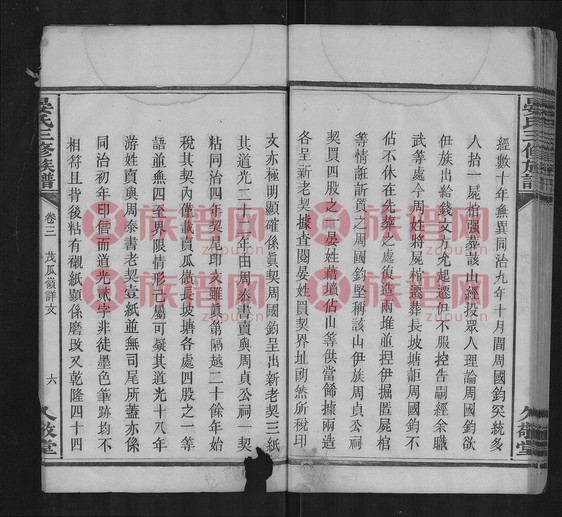 經數十年無異同治九年十月間周國鈞冥統多
人抬一屍棺強葬該山經投眾人理論周國鈞欲
伊族出給錢文方允起遷伊不服控告嗣經余職
武等處令周姓將屍棺遷葬長坡塘詎周國鈞不
佔不休在先葬之處復造兩堆並捏伊掘匿屍棺
等情誑訴質之周國鈞堅稱該山伊族周貞公祠
契買四股之一晏姓藉墳佔山等供當飭據兩造
各呈新老契據查閱晏姓買契界址朗然所稅印
文亦極明顯確係真契周國鈞呈出新老契三紙
其道光二十二年由周泰書賣與周貞公祠一契
粘同治四年契尾印文雖真第隔越二十餘年始
稅其契內僅載賣瓜嶺長坡塘各處四股之一等
語並無四至界限情形已屬可疑其道光十八年
游姓賣與周泰書老契壹紙並無司尾所蓋亦係
同治初年印信而道光貳字非徒墨色筆跡均不
相符且背後粘有襯紙顯係磨改又乾隆四十四
晏氏三修族譜
卷三
茂瓜嶺詳文
六
久敬堂
晏氏三修族譜
久敬堂
族谱网
zupu.cn